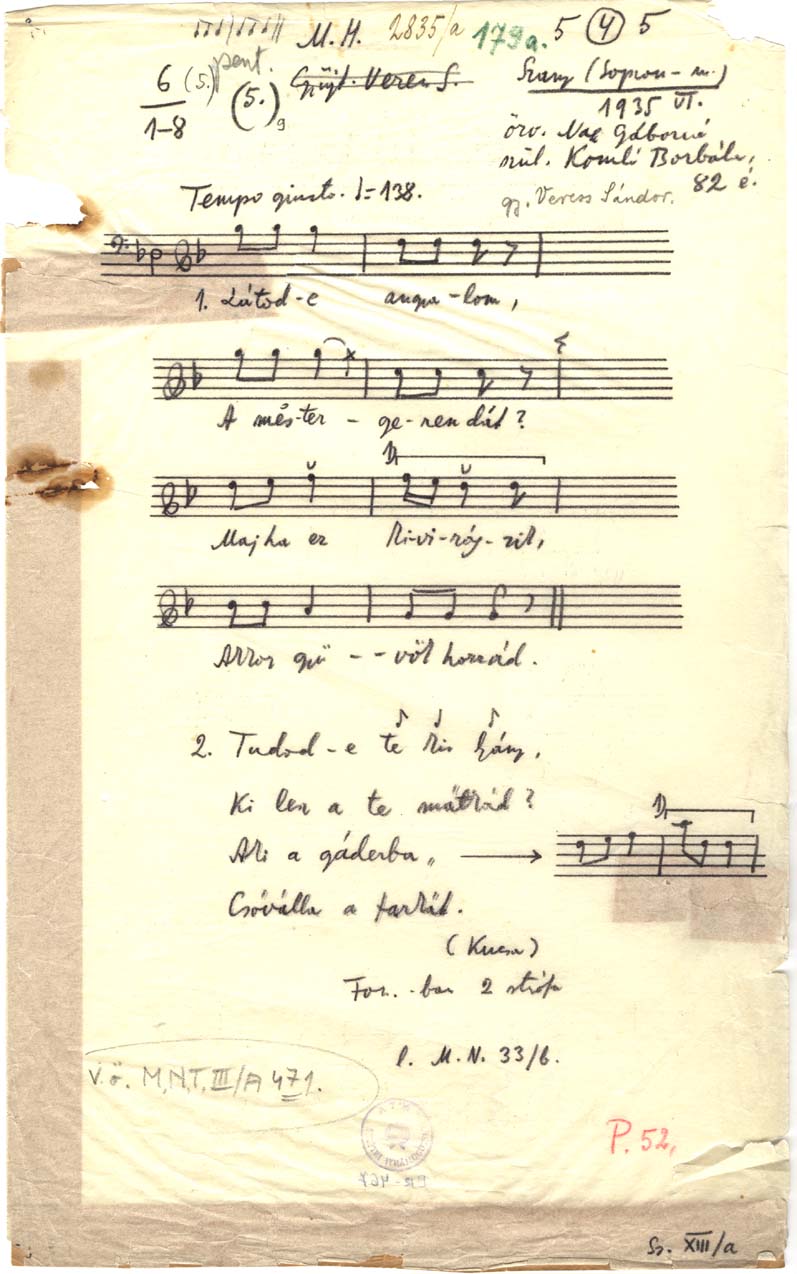 M. H. 2835/a 179a. 5 4 5
6 (5.) pent.
1-8 (5.)9
Gyüjt. Veress S.
Szany (Sopron-m.)
1935 VI.
özv. Nag Gáborné
szül. Komló Borbála,
82 é.
gy. Veress Sándor.
Tempo giusto. = 138.
1. Látod-e angya-lom,
A més-ter - ge-ren dát?
Majha ez ki-vi-rág-zik,
Akkor gyü - - völ hozzád.
2. Tudod-e te kis lány,
Ki lesz a te mátkád?
Aki a gáderba,,
Csóválla a farkát.
(Kucsa)
For. -ban 2 strófa
l. M. N. 33/b.
V.ö. M.N.T. III/A 471.
P. 52,
Sz. XIII/a